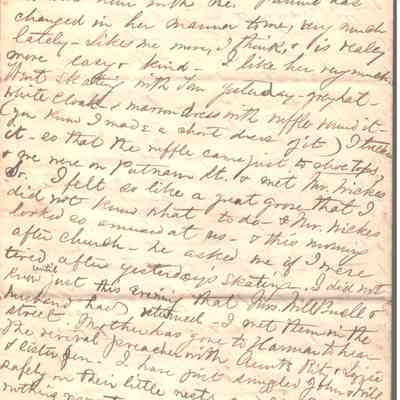 with me.
changed in her manner to me, very much
lately - Likes me more, I think, & is really
more easy & kind - I like her very much
Went skating with yesterday - grey hat -
white cloak & maroon dress with ruffle round it -
(you know I made a short dress of it) I
it - so that the ruffle came just to shoe tops,
& we were on Putnam St. & met Mr. Wickes
So. I felt so like a great goose, that I
did not know what to do - & Mr. Wickes
looked so amused at us - & this morning
after church - he asked me if I were
tired after yesterday's skating. I did not
know until this evening that Mrs. Will Buell &
husband had returned - I met them in the
street. Mother has gone to Harmar to hear
the revival preacher with Aunt &
& sister Jen. I have just snuggled John & Will
safely in their little nests
nothing